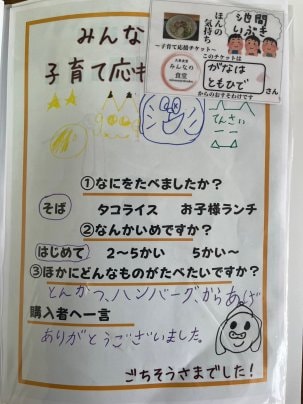 みんな
子育て応
ほんの
気持ち
池間
いぶき
〜子育て応援チケット〜
みんなの
食堂
このチケットは
がなは
ともひで
さん
からのおすそわけです
てんさい
①なにをたべましたか？
そば タコライス お子様ランチ
②なんかいめですか？
はじめて 2〜5かい 5かい〜
③ほかにどんなものがたべたいですか？
とんかつ、ハンバーグ、からあげ
購入者へ一言
ありがとうございました。
ごちそうさまでした！